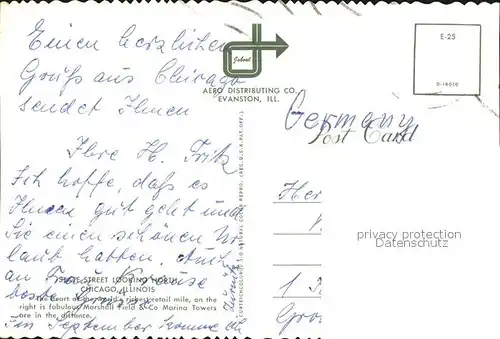 Einen herzlichen
Gruß aus Chicago
sendet Ihnen
Ihre H. Fritz
Ich hoffe, daß es
Ihnen gut geht und
Sie einen schönen Ur
laub hatten. Auch
an Frau Krause
beste Grüße
Im September komme ich
zurück
STATE STREET LOOKING NORTH
CHICAGO, ILLINOIS
heart of the world's richest retail mile, on the
right is fabulous Marshall Field & Co Marina Towers
are in the distance.
AERO DISTRIBUTING CO.
EVANSTON, ILL.
E-25
D-18010
Germany
Post Card
Her
privacy protection
Datenschutz